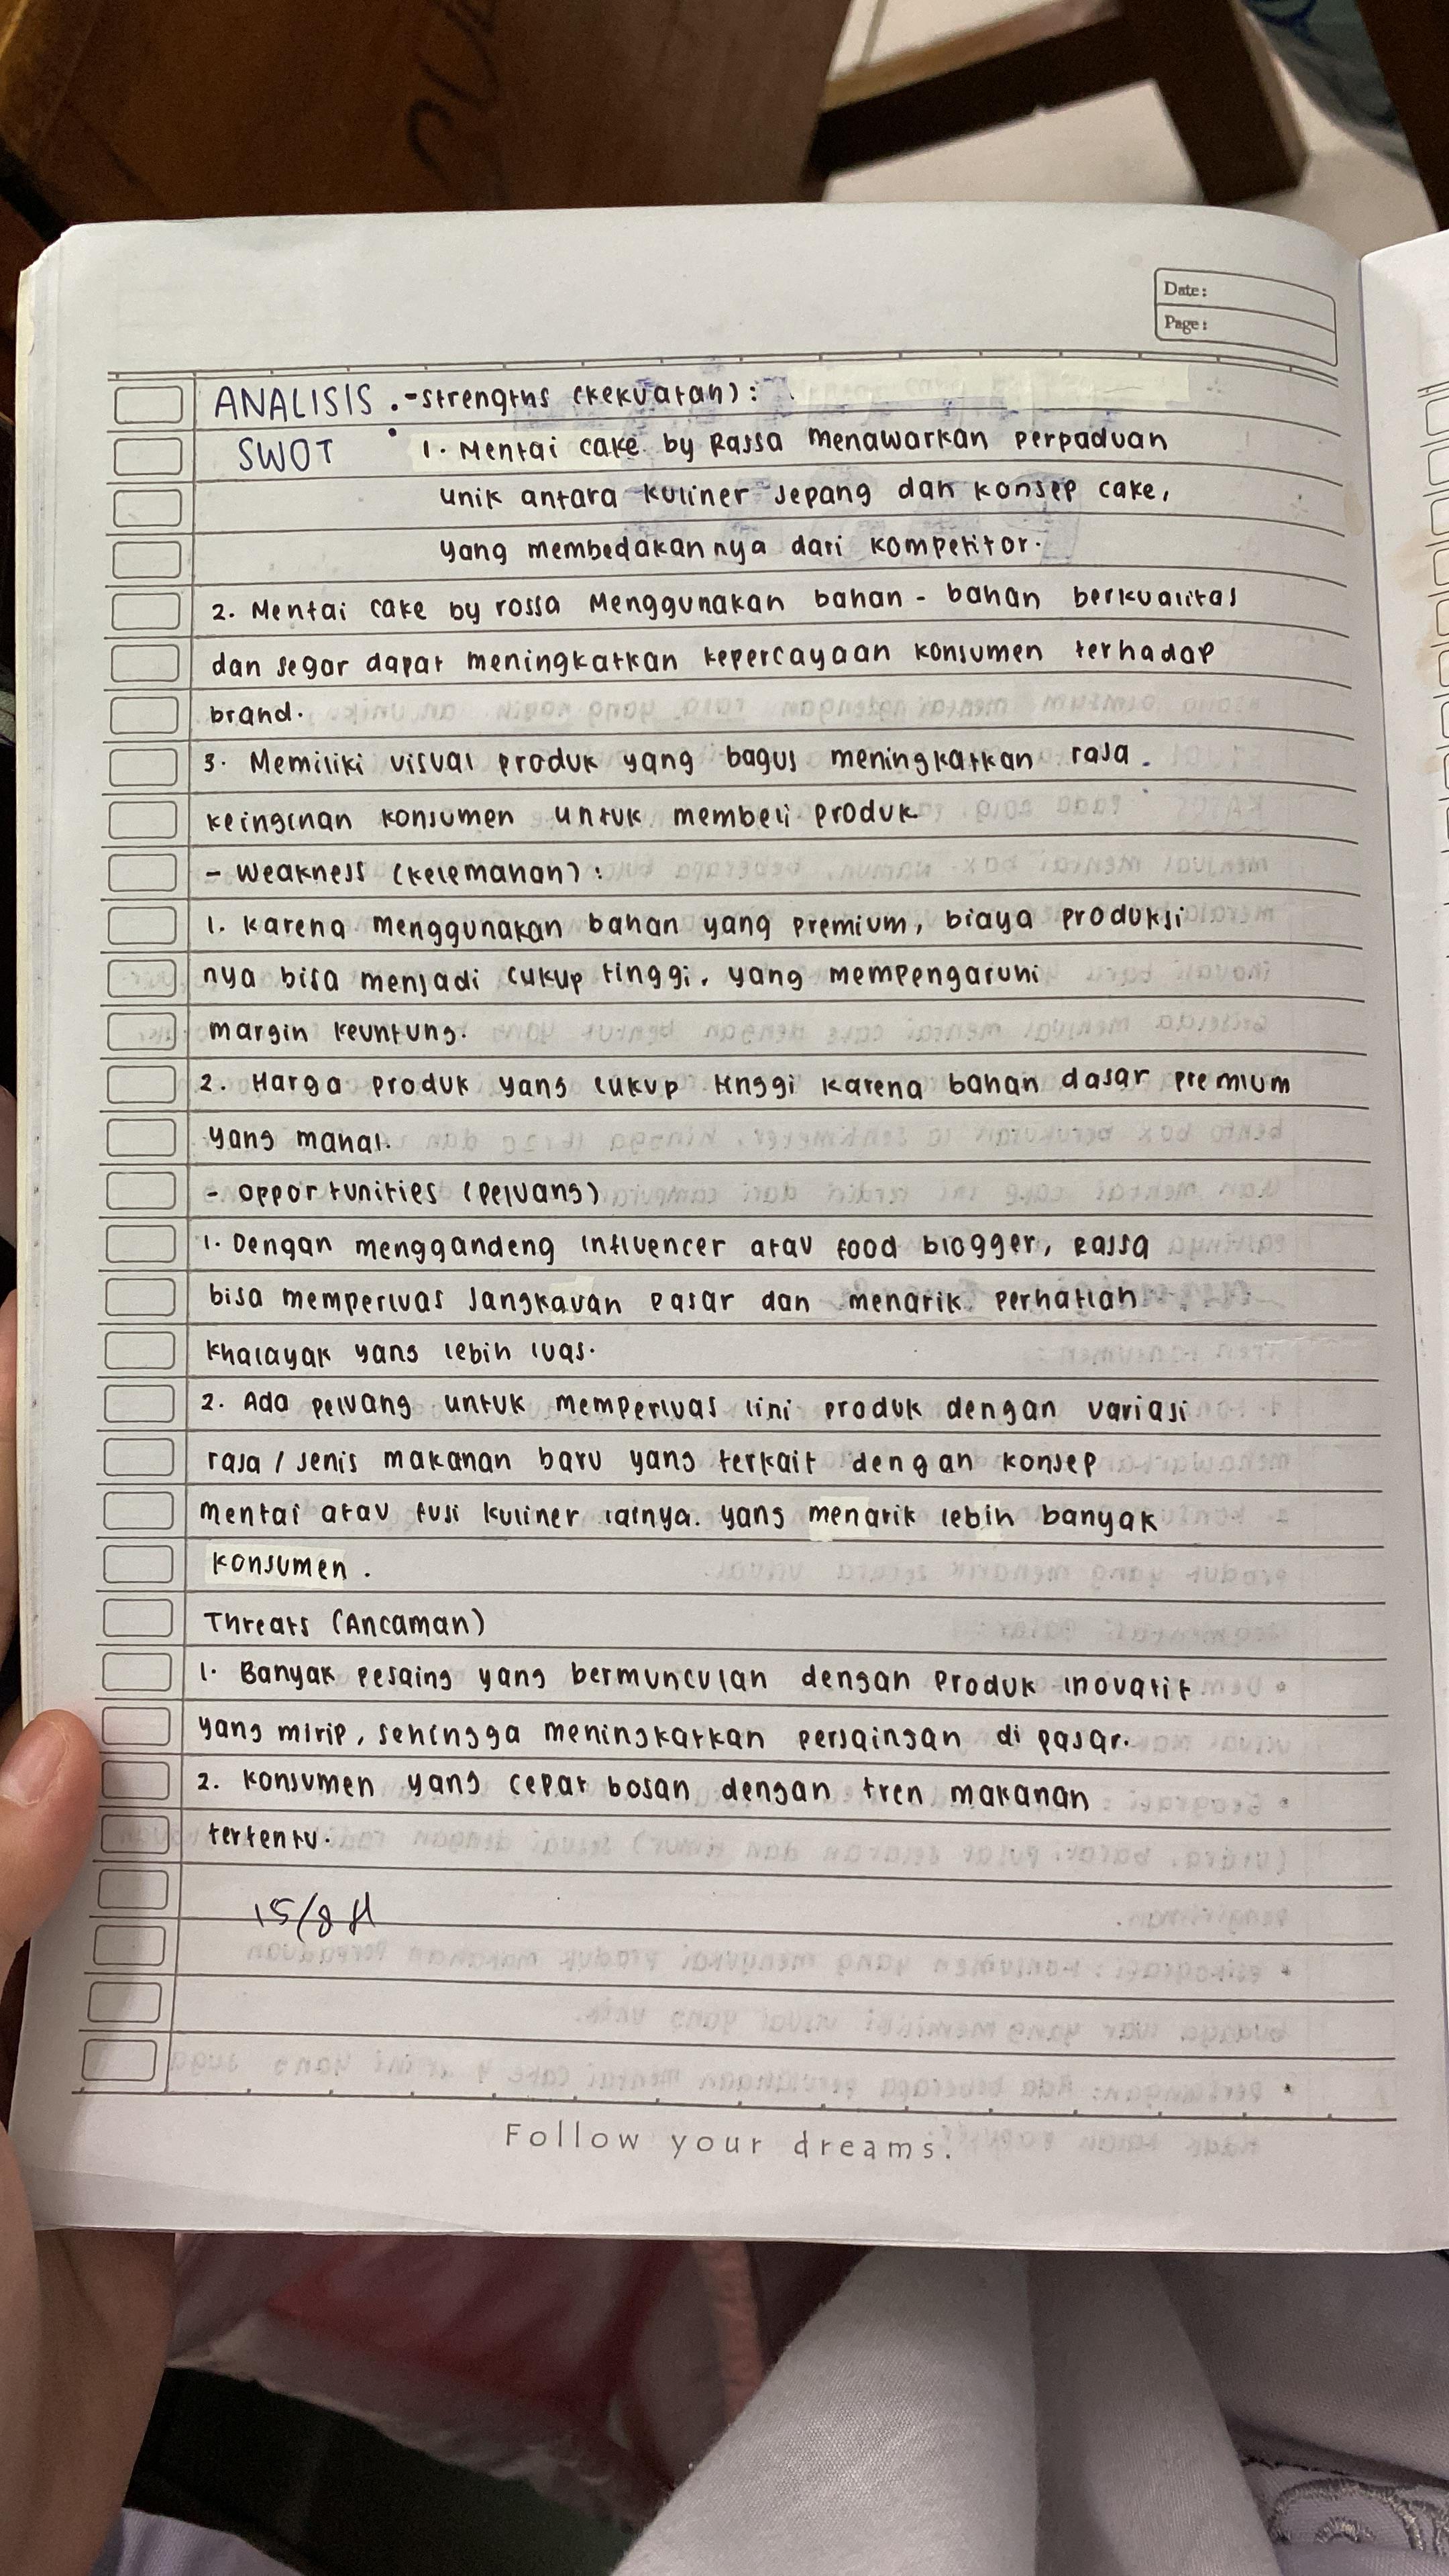 Date:
Page:
ANALISIS .-strengths (kekuatan) :
SWOT 1. Mentai cake by Rassa menawarkan perpaduan
unik antara kuliner Jepang dan konsep cake,
yang membedakannya dari kompetitor.
2. Mentai cake by rossa Menggunakan bahan - bahan berkualitas
dan segar dapat meningkatkan kepercayaan konsumen terhadap
brand.
3. Memiliki visual produk yang bagus meningkatkan rasa.
keinginan konsumen untuk membeli produk
- Weakness (kelemahan) :
1. Karena menggunakan bahan yang premium, biaya produksi
nya bisa menjadi cukup tinggi, yang mempengaruhi
margin keuntung.
2. Harga produk yang cukup tinggi karena bahan dasar premium
yang mahal.
- opportunities (peluang)
1. Dengan menggandeng influencer atau food blogger, Rassa
bisa memperluas Jangkauan Pasar dan menarik perhatian
khalayak yang lebih luas.
2. Ada peluang untuk memperluas lini produk dengan variasi
rasa / jenis makanan baru yang terkait dengan konsep
mentai atau fusi kuliner lainya. yang menarik lebih banyak
konsumen.
Threats (Ancaman)
1. Banyak pesaing yang bermunculan dengan produk inovatif
yang mirip, sehingga meningkatkan persaingan di pasar.
2. Konsumen yang cepat bosan dengan tren makanan
tertentu.
15/8
Follow your dreams.